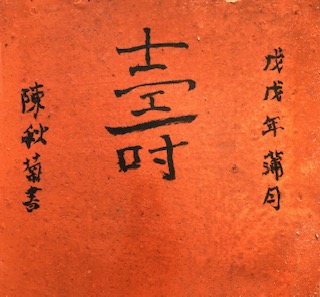 戊戌年蒲月
壽
陳秋菊書